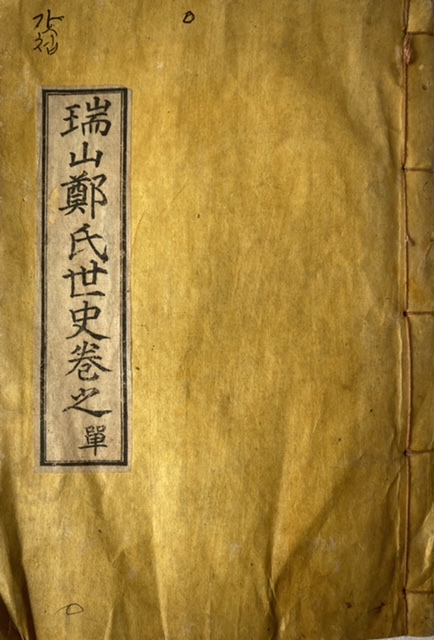 瑞山鄭氏世史卷之單